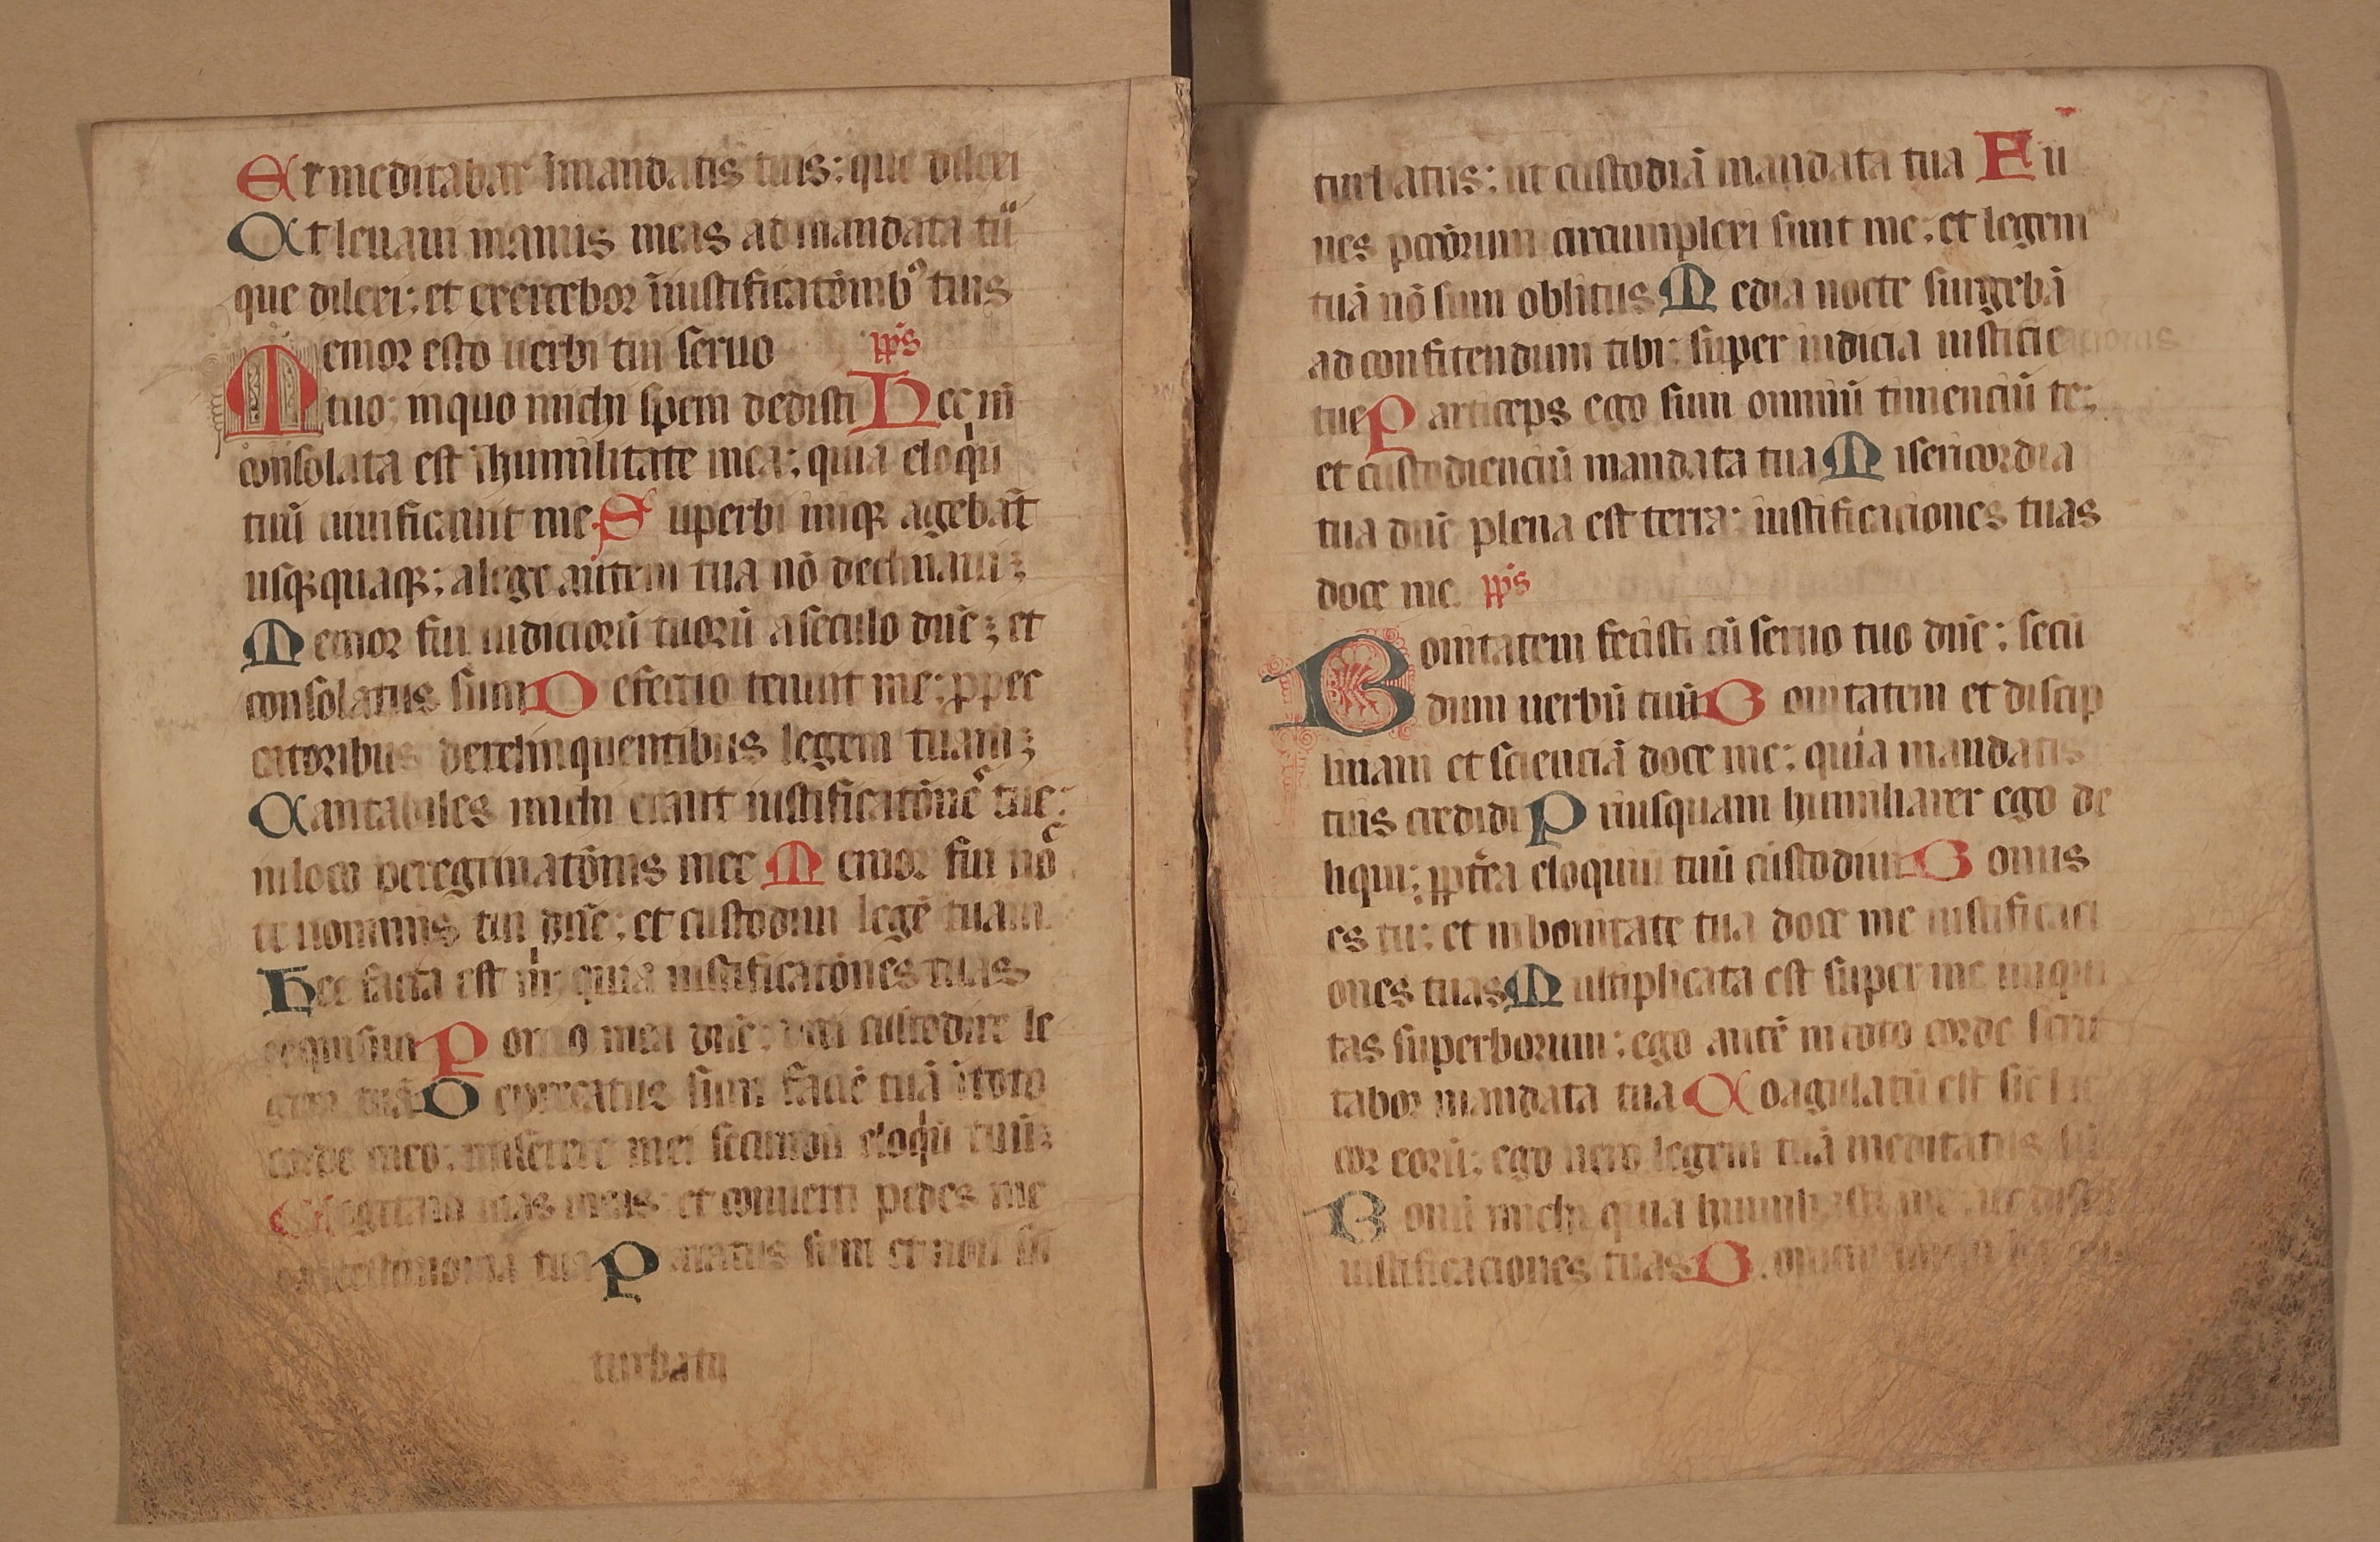 Et meditabar ī mandatis tuis: que dilexi
Et leuaui manus meas ad mandata tua
que dilexi: et exercebor ī iustificatōnibꝰ tuis
Memor esto uerbi tui seruo pṡ
tuo: in quo michi spem dedisti Hec m̄
consolata est ī humilitate mea: quia eloqͥū
tuū uiuificauit me Superbi iniqꝫ agebāt
usqꝫquaqꝫ: a lege autem tua nō declinaui:
Memor fui iudiciorū tuorū a seculo dn̄e: et
consolatus sum Defectio tenuit me: p̱ pec
catoribus derelinquentibus legem tuam:
Cantabiles michi erant iustificatōnes tue:
in loco peregrinatōnis mee Memor fui noc
te nominis tui dn̄e: et custodiui legē tuam
Hec facta est mͥ: quia iustificatōnes tuas
exquisiui Portio mea dn̄e: dixi custodire le
gem tuā Deprecatus sum faciē tuā ī toto
corde meo: miserere mei secundū eloqͥū tuū:
Cogitaui uias meas: et conuerti pedes me
os in testimonia tua Paratus sum et non sū
turbatꝰ
turbatus: ut custodiā mandata tua Fu
nes pctōrum circumplexi sunt me: et legem
tuā nō sum oblitus Media nocte surgebā
ad confitendum tibi: super iudicia iusticie
tue Particeps ego sum omniū timenciū te:
et custodienciū mandata tua Misericordia
tua dn̄e plena est terra: iustificaciones tuas
doce me pṡ
Bonitatem fecisti cū seruo tuo dn̄e: secū
dum uerbū tuū Bonitatem et discip
linam et scienciā doce me: quia mandatis
tuis credidi Priusquam humiliarer ego de
liqui: ppt̄ea eloquiū tuū custodiui Bonus
es tu: et in bonitate tua doce me iustificaci
ones tuas Multiplicata est super me iniqui
tas superborum: ego autē in toto corde scru
tabor mandata tua Coagulatū est sic lac
cor eorū: ego uero legem tuā meditatus sū
Bonū michi quia humiliasti me: ut discā
iustificaciones tuas Bonum